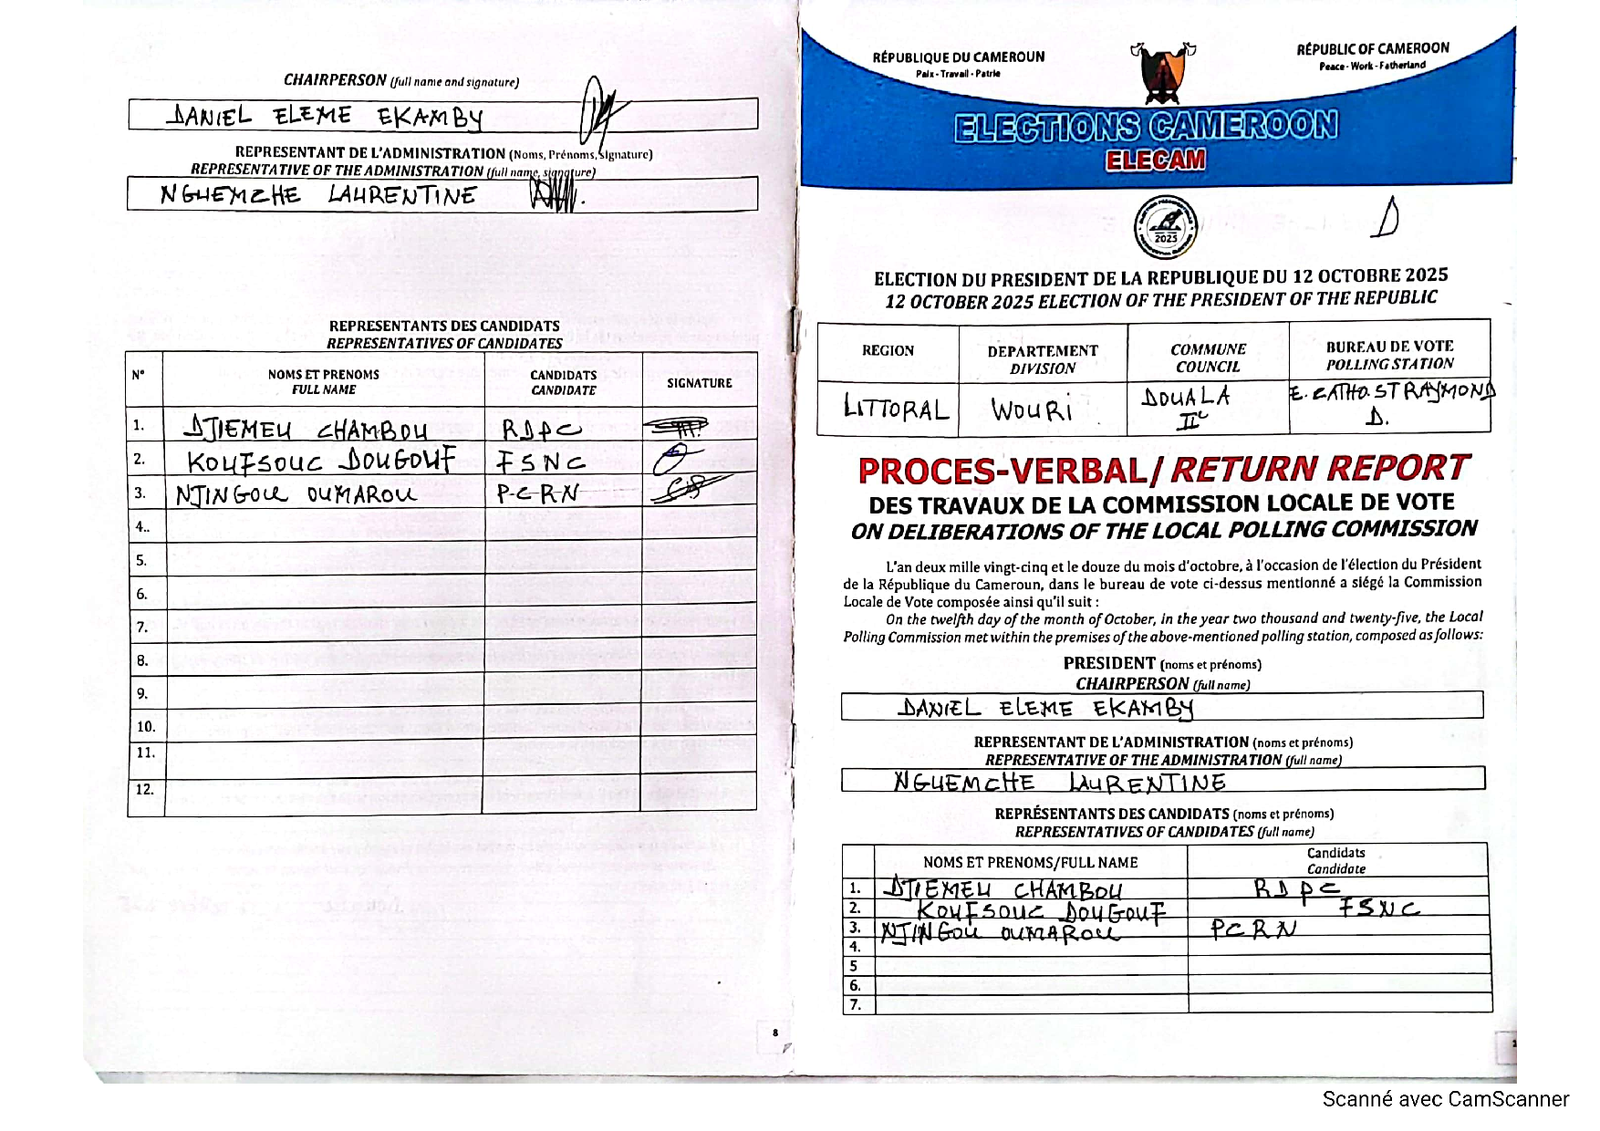 CHAIRPERSON (full name and signature)
DANIEL ELEME EKAMBY
REPRESENTANT DE L'ADMINISTRATION (Noms, Prénoms, signature)
REPRESENTATIVE OF THE ADMINISTRATION (full name, signature)
NGUEMCHE LAURENTINE
REPRESENTANTS DES CANDIDATS
REPRESENTATIVES OF CANDIDATES
N° NOMS ET PRENOMS FULL NAME CANDIDATS CANDIDATE SIGNATURE
1. DJIEMEU CHAMBOU RDPC
2. KOUFSOUC DOUGOUF FSNC
3. NJINGOU OUMAROU P.C.R.N
4..
5.
6.
7.
8.
9.
10.
11.
12.
8
RÉPUBLIQUE DU CAMEROUN
Paix - Travail - Patrie
RÉPUBLIC OF CAMEROON
Peace - Work - Fatherland
ELECTIONS CAMEROON
ELECAM
2025
D
ELECTION DU PRESIDENT DE LA REPUBLIQUE DU 12 OCTOBRE 2025
12 OCTOBER 2025 ELECTION OF THE PRESIDENT OF THE REPUBLIC
REGION DEPARTEMENT DIVISION COMMUNE COUNCIL BUREAU DE VOTE POLLING STATION
LITTORAL WOURI DOUALA IIe E. CATHO. ST RAYMOND D.
PROCES-VERBAL/ RETURN REPORT
DES TRAVAUX DE LA COMMISSION LOCALE DE VOTE
ON DELIBERATIONS OF THE LOCAL POLLING COMMISSION
L'an deux mille vingt-cinq et le douze du mois d'octobre, à l'occasion de l'élection du Président
de la République du Cameroun, dans le bureau de vote ci-dessus mentionné a siégé la Commission
Locale de Vote composée ainsi qu'il suit :
On the twelfth day of the month of October, in the year two thousand and twenty-five, the Local
Polling Commission met within the premises of the above-mentioned polling station, composed as follows:
PRESIDENT (noms et prénoms)
CHAIRPERSON (full name)
DANIEL ELEME EKAMBY
REPRESENTANT DE L'ADMINISTRATION (noms et prénoms)
REPRESENTATIVE OF THE ADMINISTRATION (full name)
NGUEMCHE LAURENTINE
REPRÉSENTANTS DES CANDIDATS (noms et prénoms)
REPRESENTATIVES OF CANDIDATES (full name)
NOMS ET PRENOMS/FULL NAME Candidats Candidate
1. DJIEMEU CHAMBOU RDPC
2. KOUFSOUC DOUGOUF FSNC
3. NJINGOU OUMAROU PCRN
4.
5
6.
7.
Scanné avec CamScanner